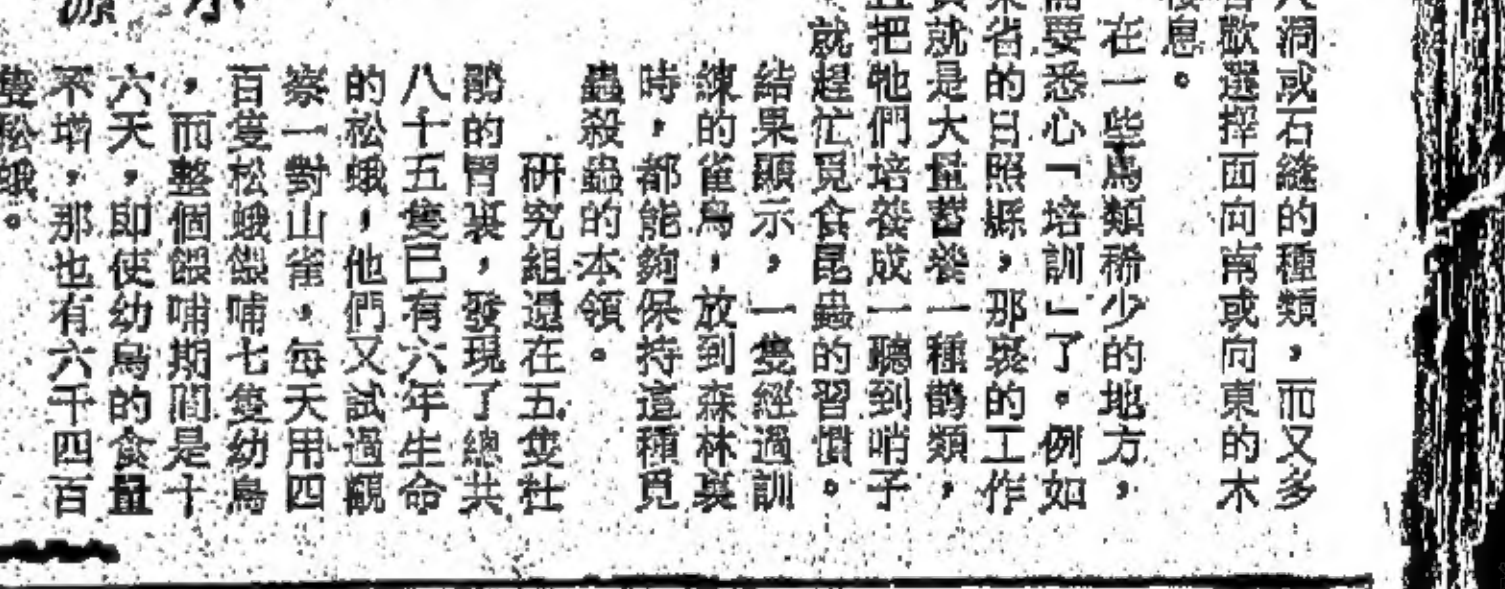 洞或石縫的種類，而又多
歡選擇面向南或向東的木
息。
在一些鳥類稀少的地方，
要悉心「培訓」了。例如
省的日照縣，那裏的工作
就是大量蓄養一種鵲類，
把牠們培養成一聽到哨子
就趕忙覓食昆蟲的習慣。
結果顯示，一隻經過訓
練的雀鳥，放到森林裏
時，都能夠保持這種覓
蟲殺蟲的本領。
研究組還在五隻杜
鵑的胃裏，發現了總共
八十五隻已有六年生命
的松蛾，他們又試過觀
察一對山雀，每天用四
百隻松蛾餵哺七隻幼鳥
，而整個餵哺期間是十
六天，即使幼鳥的食量
不增，那也有六千四百
隻松蛾。